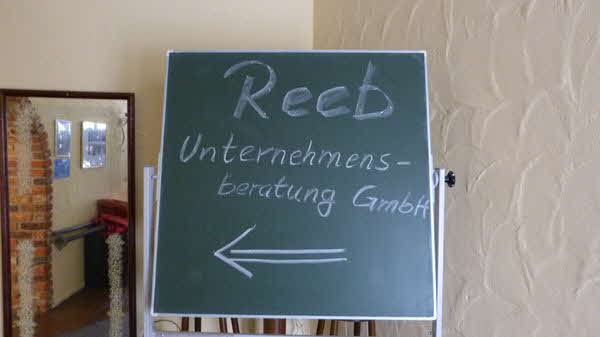 Reeb
Unternehmens-
beratung GmbH